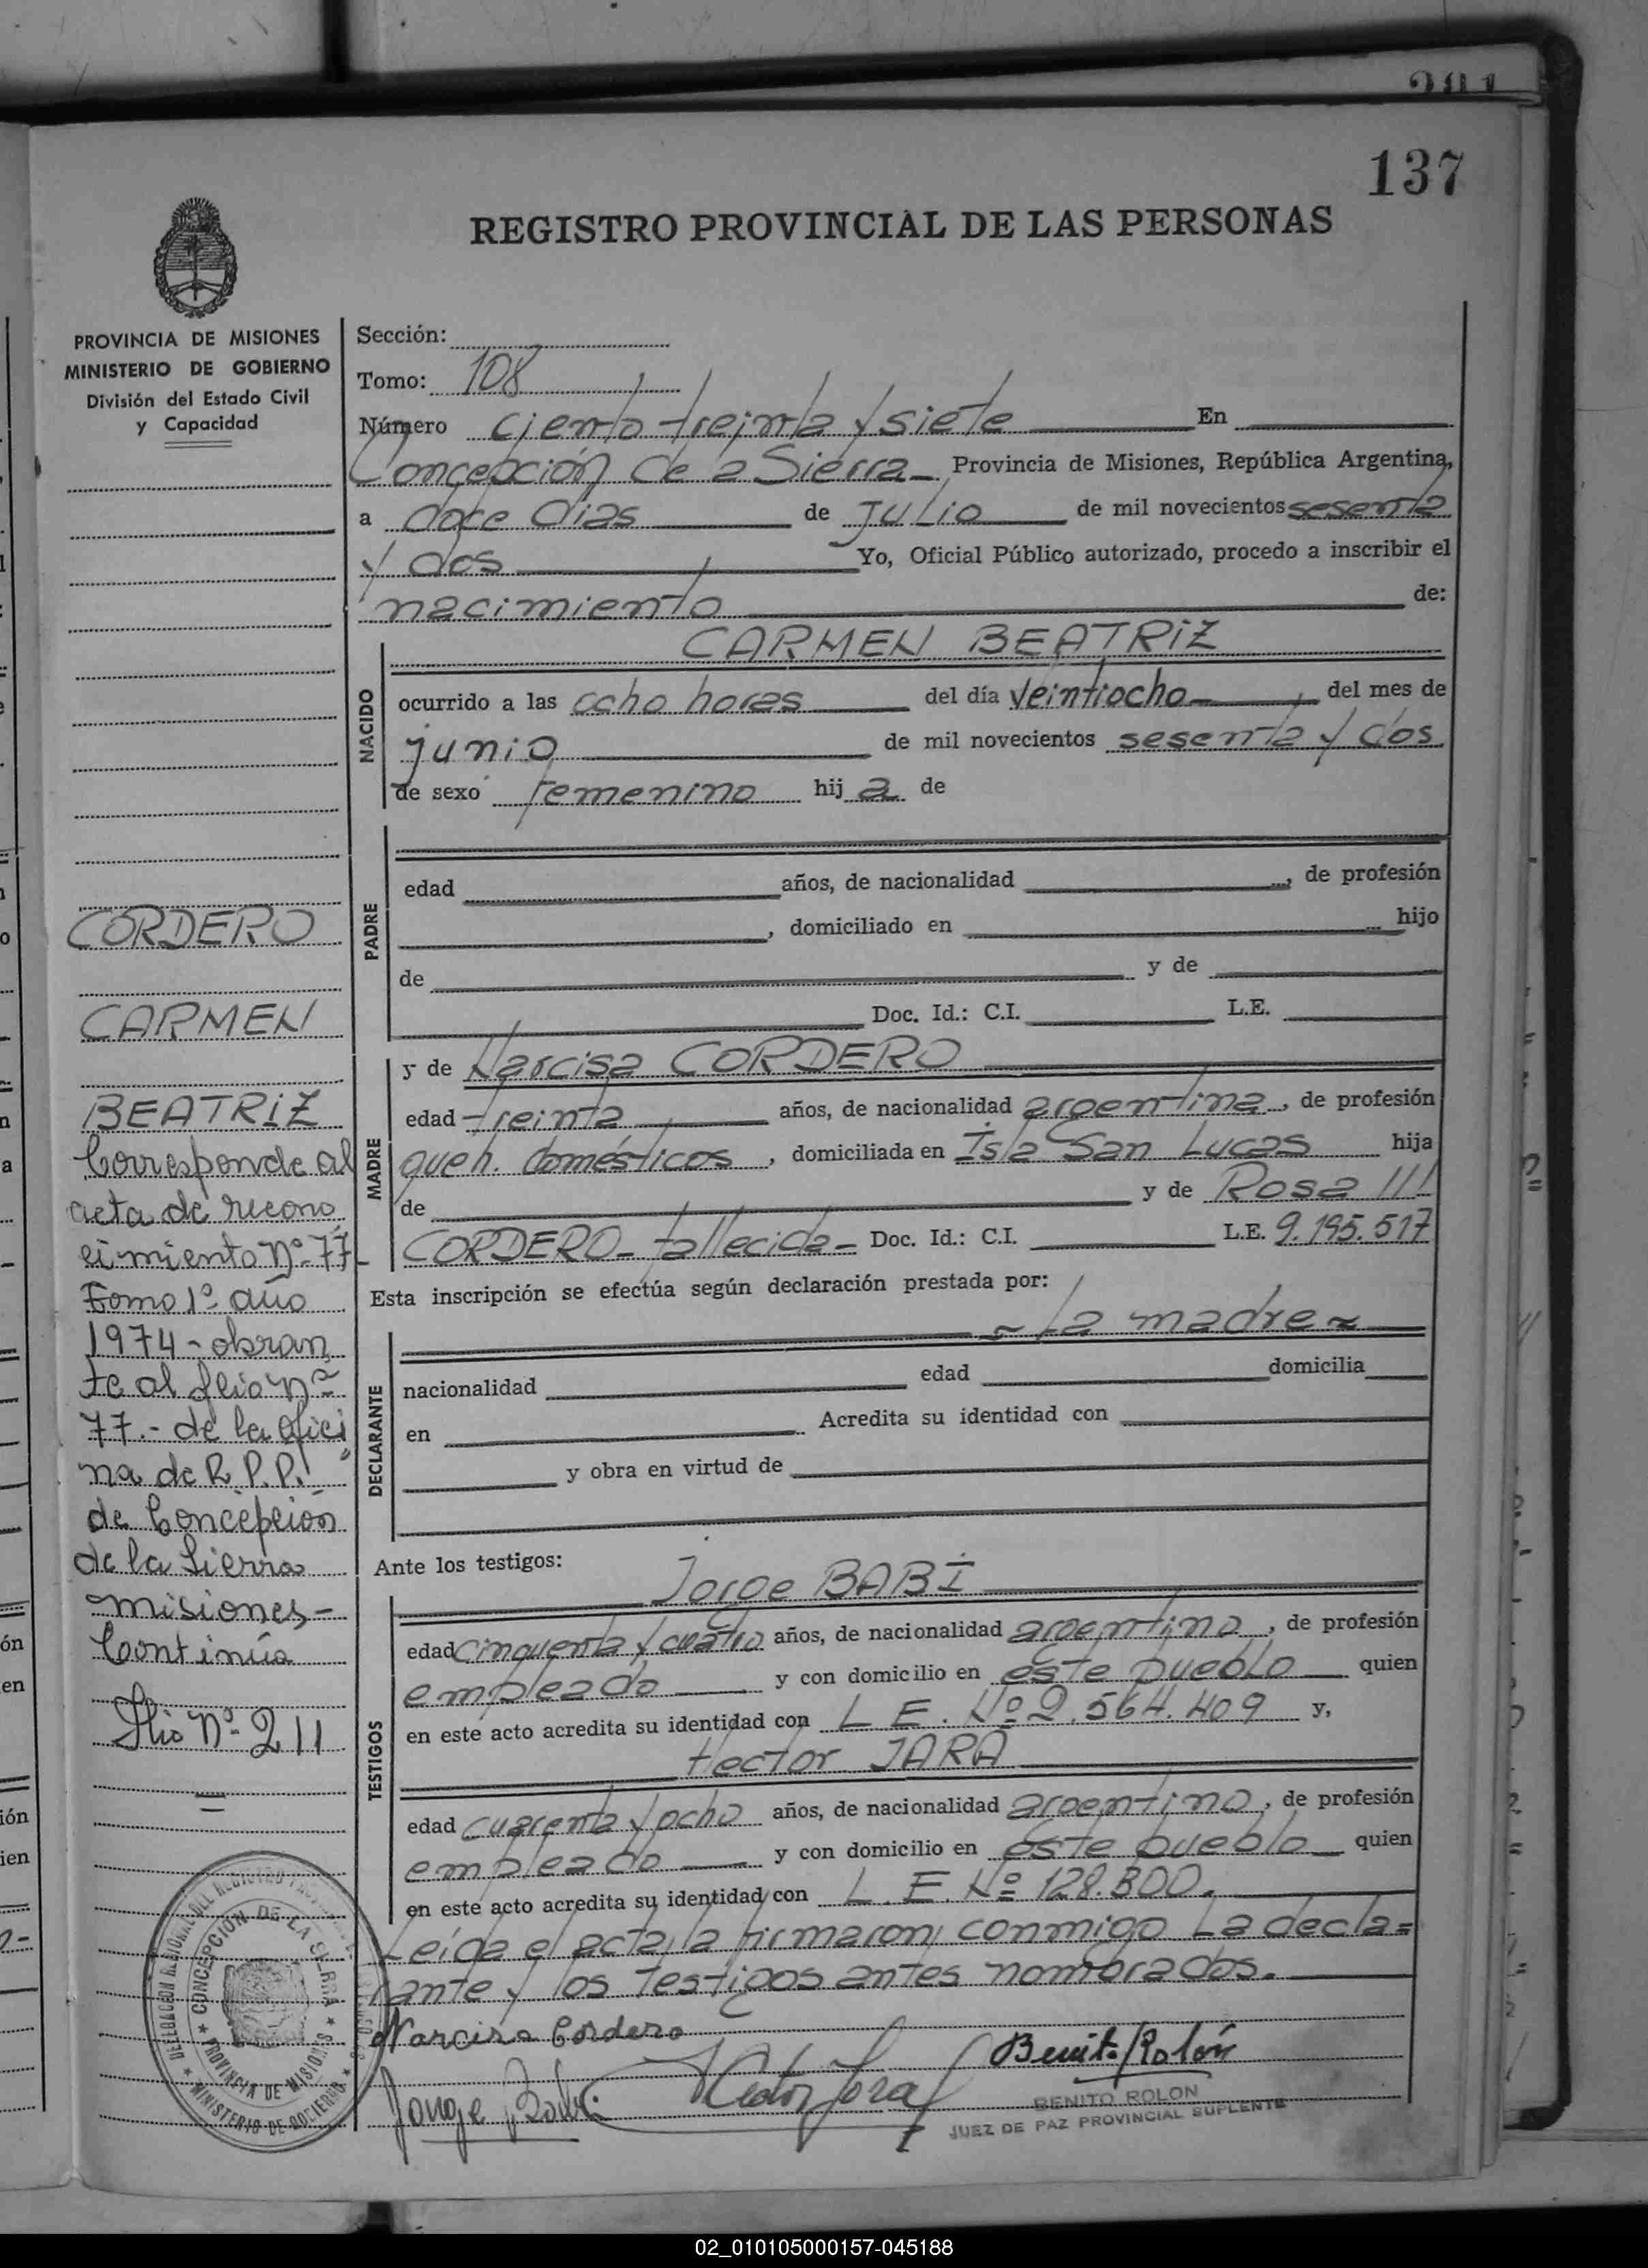 137
REGISTRO PROVINCIAL DE LAS PERSONAS
PROVINCIA DE MISIONES
MINISTERIO DE GOBIERNO
División del Estado Civil
y Capacidad
CORDERO
CARMEN
BEATRIZ
Corresponde al
acta de recono
cimiento Nº 77
Tomo 1º año
1974 - obran
te al folio Nº
77.- de la ofici
na de R.P.P.
de Concepción
de la Sierra
misiones -
Continúa
folio Nº 211
Sección:
Tomo: 108
Número ciento treinta y siete En
Concepción de la Sierra - Provincia de Misiones, República Argentina,
a doce días de Julio de mil novecientos sesenta
y dos Yo, Oficial Público autorizado, procedo a inscribir el
nacimiento de:
NACIDO
CARMEN BEATRIZ
ocurrido a las ocho horas del día veintiocho del mes de
junio de mil novecientos sesenta y dos
de sexo femenino hij a de
PADRE
edad años, de nacionalidad , de profesión
, domiciliado en hijo
de y de
Doc. Id.: C.I. L.E.
MADRE
y de Narcisa CORDERO
edad treinta años, de nacionalidad argentina, de profesión
queh. domésticos, domiciliada en Isla San Lucas hija
de y de Rosa
CORDERO - fallecida - Doc. Id.: C.I. L.E. 9.195.517
Esta inscripción se efectúa según declaración prestada por:
DECLARANTE
~ la madre ~
nacionalidad edad domicilia
en Acredita su identidad con
y obra en virtud de
Ante los testigos:
TESTIGOS
Jorge BABI
edad cinquenta y cuatro años, de nacionalidad argentino, de profesión
empleado y con domicilio en este pueblo quien
en este acto acredita su identidad con L. E. Nº 2.564.409 y,
Hector JARA
edad cuarenta y ocho años, de nacionalidad argentino, de profesión
empleado y con domicilio en este pueblo quien
en este acto acredita su identidad con L. E. Nº 128.300.
Leída el acta, la firmaron conmigo la decla=
rante y los testigos antes nombrados.
Narcisa Cordero
Benito Rolón
Jorge Babi
Hector Jara
BENITO ROLON
JUEZ DE PAZ PROVINCIAL SUPLENTE
CONCEPCION DE LA SIERRA
PROVINCIA DE MISIONES
MINISTERIO DE GOBIERNO
02_010105000157-045188